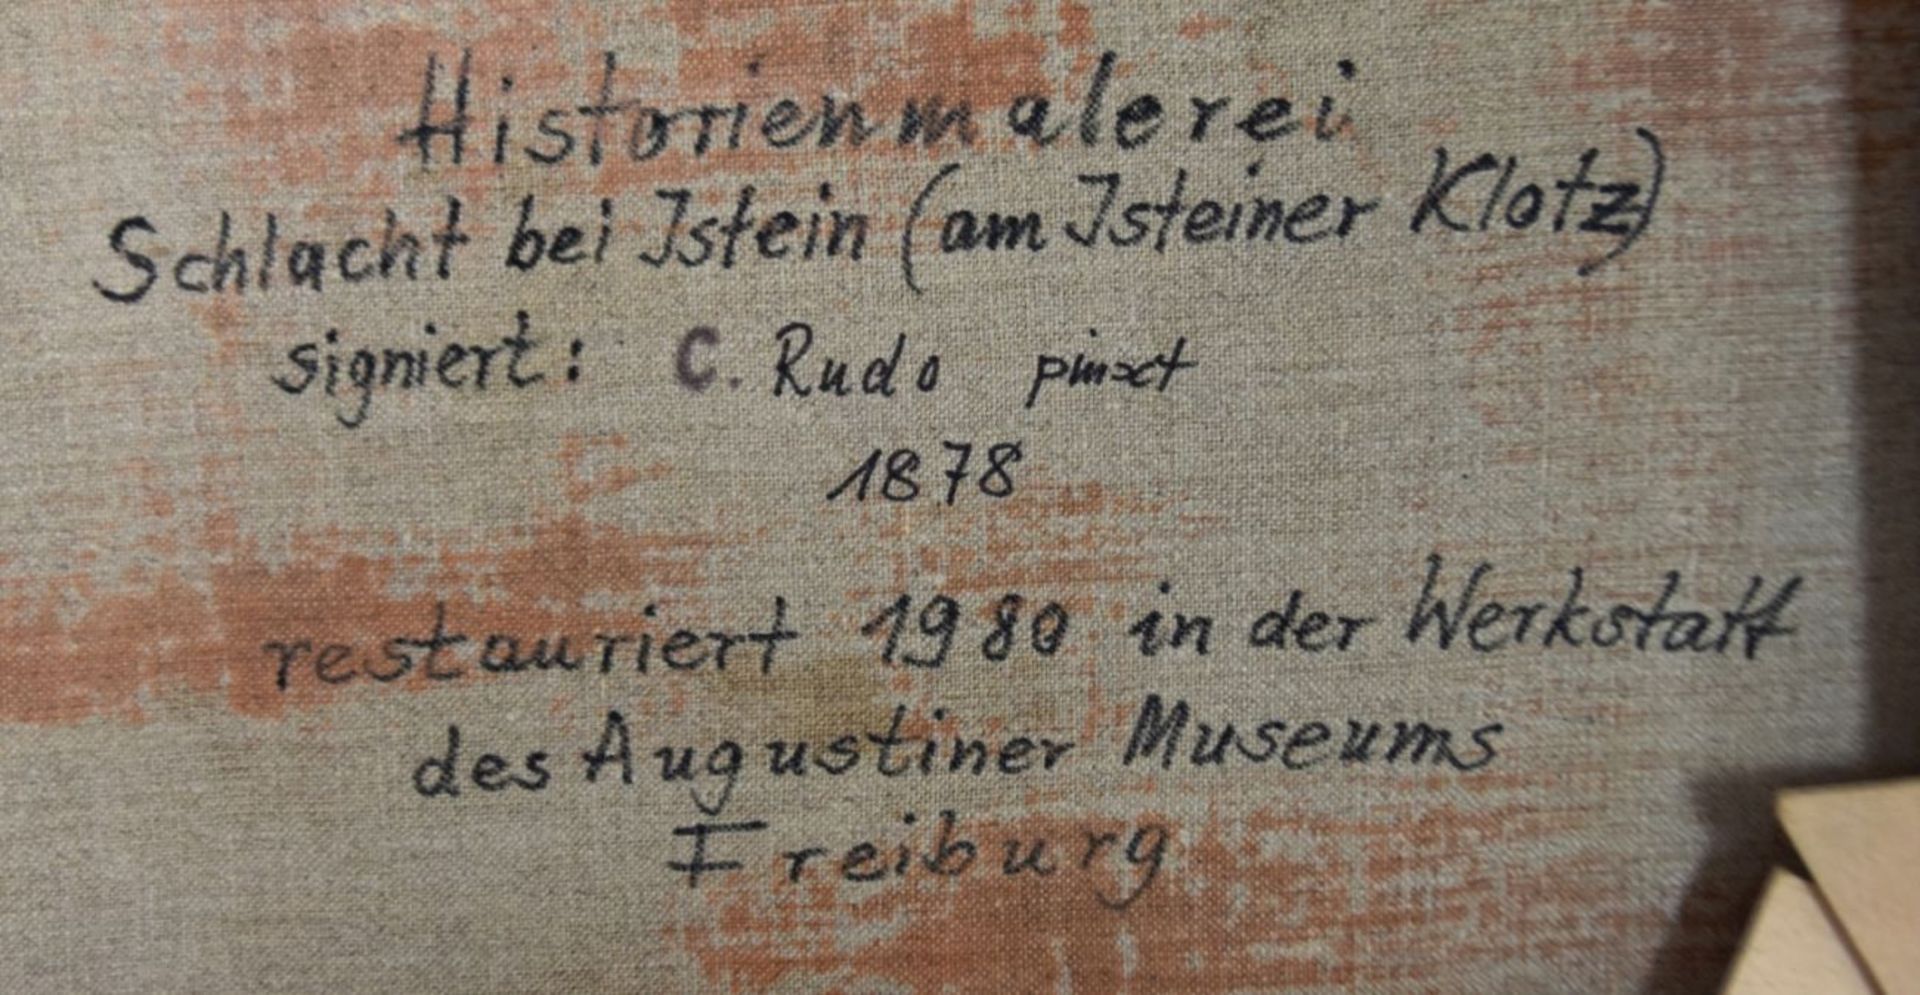 Historienmalerei
Schlacht bei Istein (am Isteiner Klotz)
signiert: C. Rudo pinxt
1878
restauriert 1980 in der Werkstatt
des Augustiner Museums
Freiburg